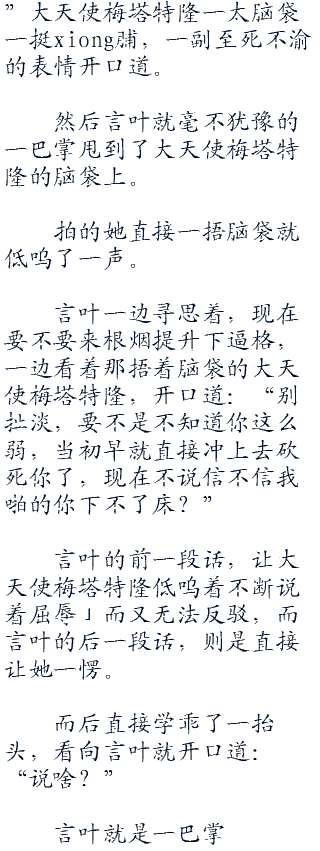 ” 大天使梅塔特隆一太脑袋
一挺xiong脯，一副至死不渝
的表情开口道。
然后言叶就毫不犹豫的
一巴掌甩到了大天使梅塔特
隆的脑袋上。
拍的她直接一捂脑袋就
低呜了一声。
言叶一边寻思着，现在
要不要来根烟提升下逼格，
一边看着那捂着脑袋的大天
使梅塔特隆，开口道：“别
扯淡，要不是不知道你这么
弱，当初早就直接冲上去砍
死你了，现在不说信不信我
啪的你下不了床？”
言叶的前一段话，让大
天使梅塔特隆低呜着不断说
着屈辱」而又无法反驳，而
言叶的后一段话，则是直接
让她一愣。
而后直接学乖了一抬
头，看向言叶就开口道：
“说啥？”
言叶就是一巴掌